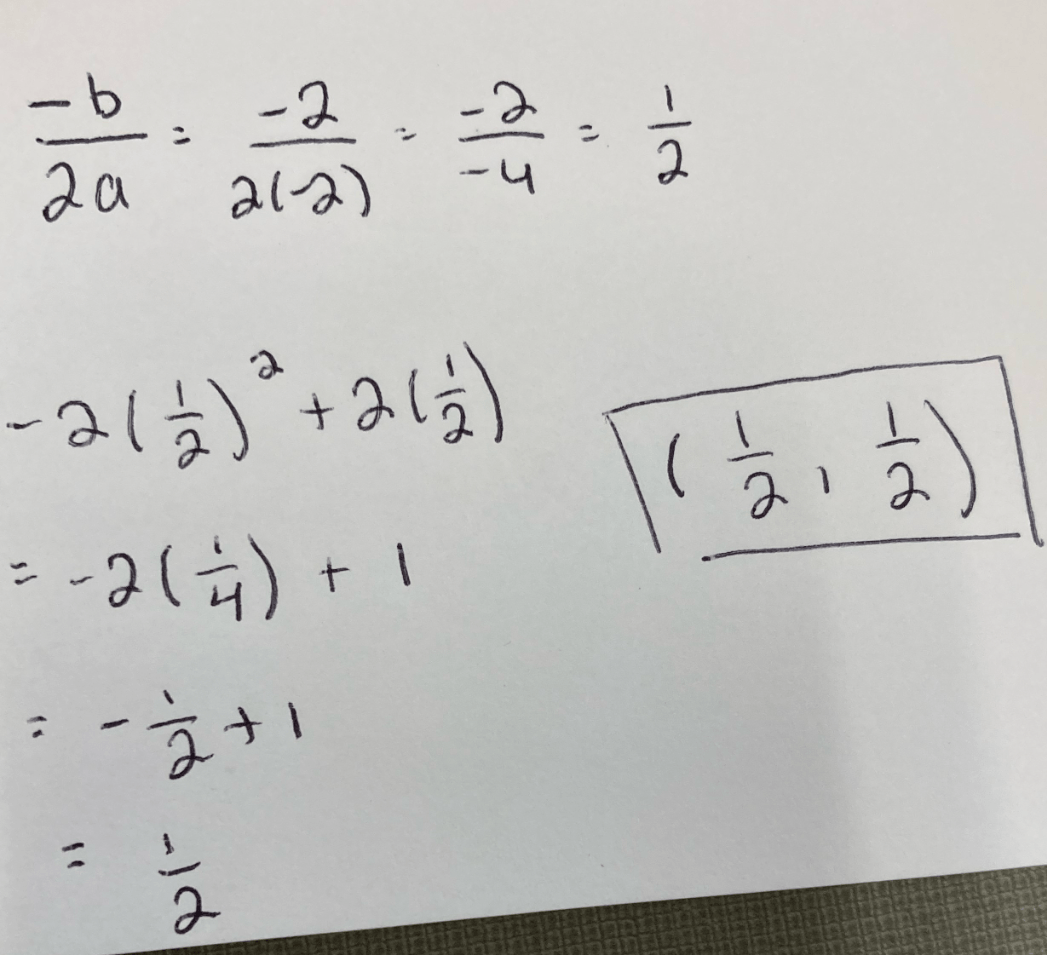 -b/2a = -2/2(-2) = -2/-4 = 1/2
-2(1/2)² + 2(1/2)
(1/2, 1/2)
= -2(1/4) + 1
= -1/2 + 1
= 1/2